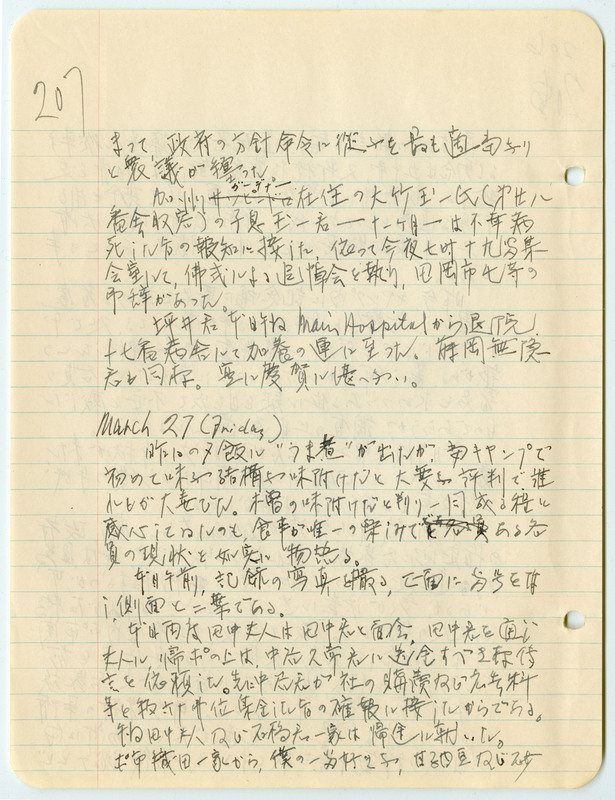 207
まって、政府の方針命令に従ふを最も適当なり
と衆議が纏った。
加州 ガーデナー 在住の大竹玉一氏(第廿八
番舎収容)の子息玉一君 — 十一ヶ月 — は不幸病
死した旨の報知に接した、依って今夜七时十九号集
会室にて、佛式による追悼会を執り、田岡市七等の
弔辞があった。
坪井君、本日 Main Hospital から退院、
十七番病舎にて加養の運に至った。静岡無隠
君も同様。実に慶賀に堪へない。
March 27 (Friday)
昨日の夕飯に"うま煮"が出たが、当キャンプで
初めて味ふ結構な味附けだと大変な評判で、誰
れもが大喜びだ。木曽の味附けだと判り一同成る程と
感心してゐたのも、食事が唯一の楽みである各
員の現状を如実に物語る。
本日午前、記録の写真を撮る、正面に番号を附
し、側面と二葉である。
本日再度田中夫人は田中君と面会、田中君を通じ
夫人に、帰ポの上は、中浴久常君に送金すべき様傳
言を依頼した。先に中浴君が社の購讀及び広告料
等を数六十弗位集金した旨の確報に接したからである。
田中夫人及び石橋君一家は帰途に就いた。
ポ市織田一家から、僕の一番好きな、甘納豆及び砂